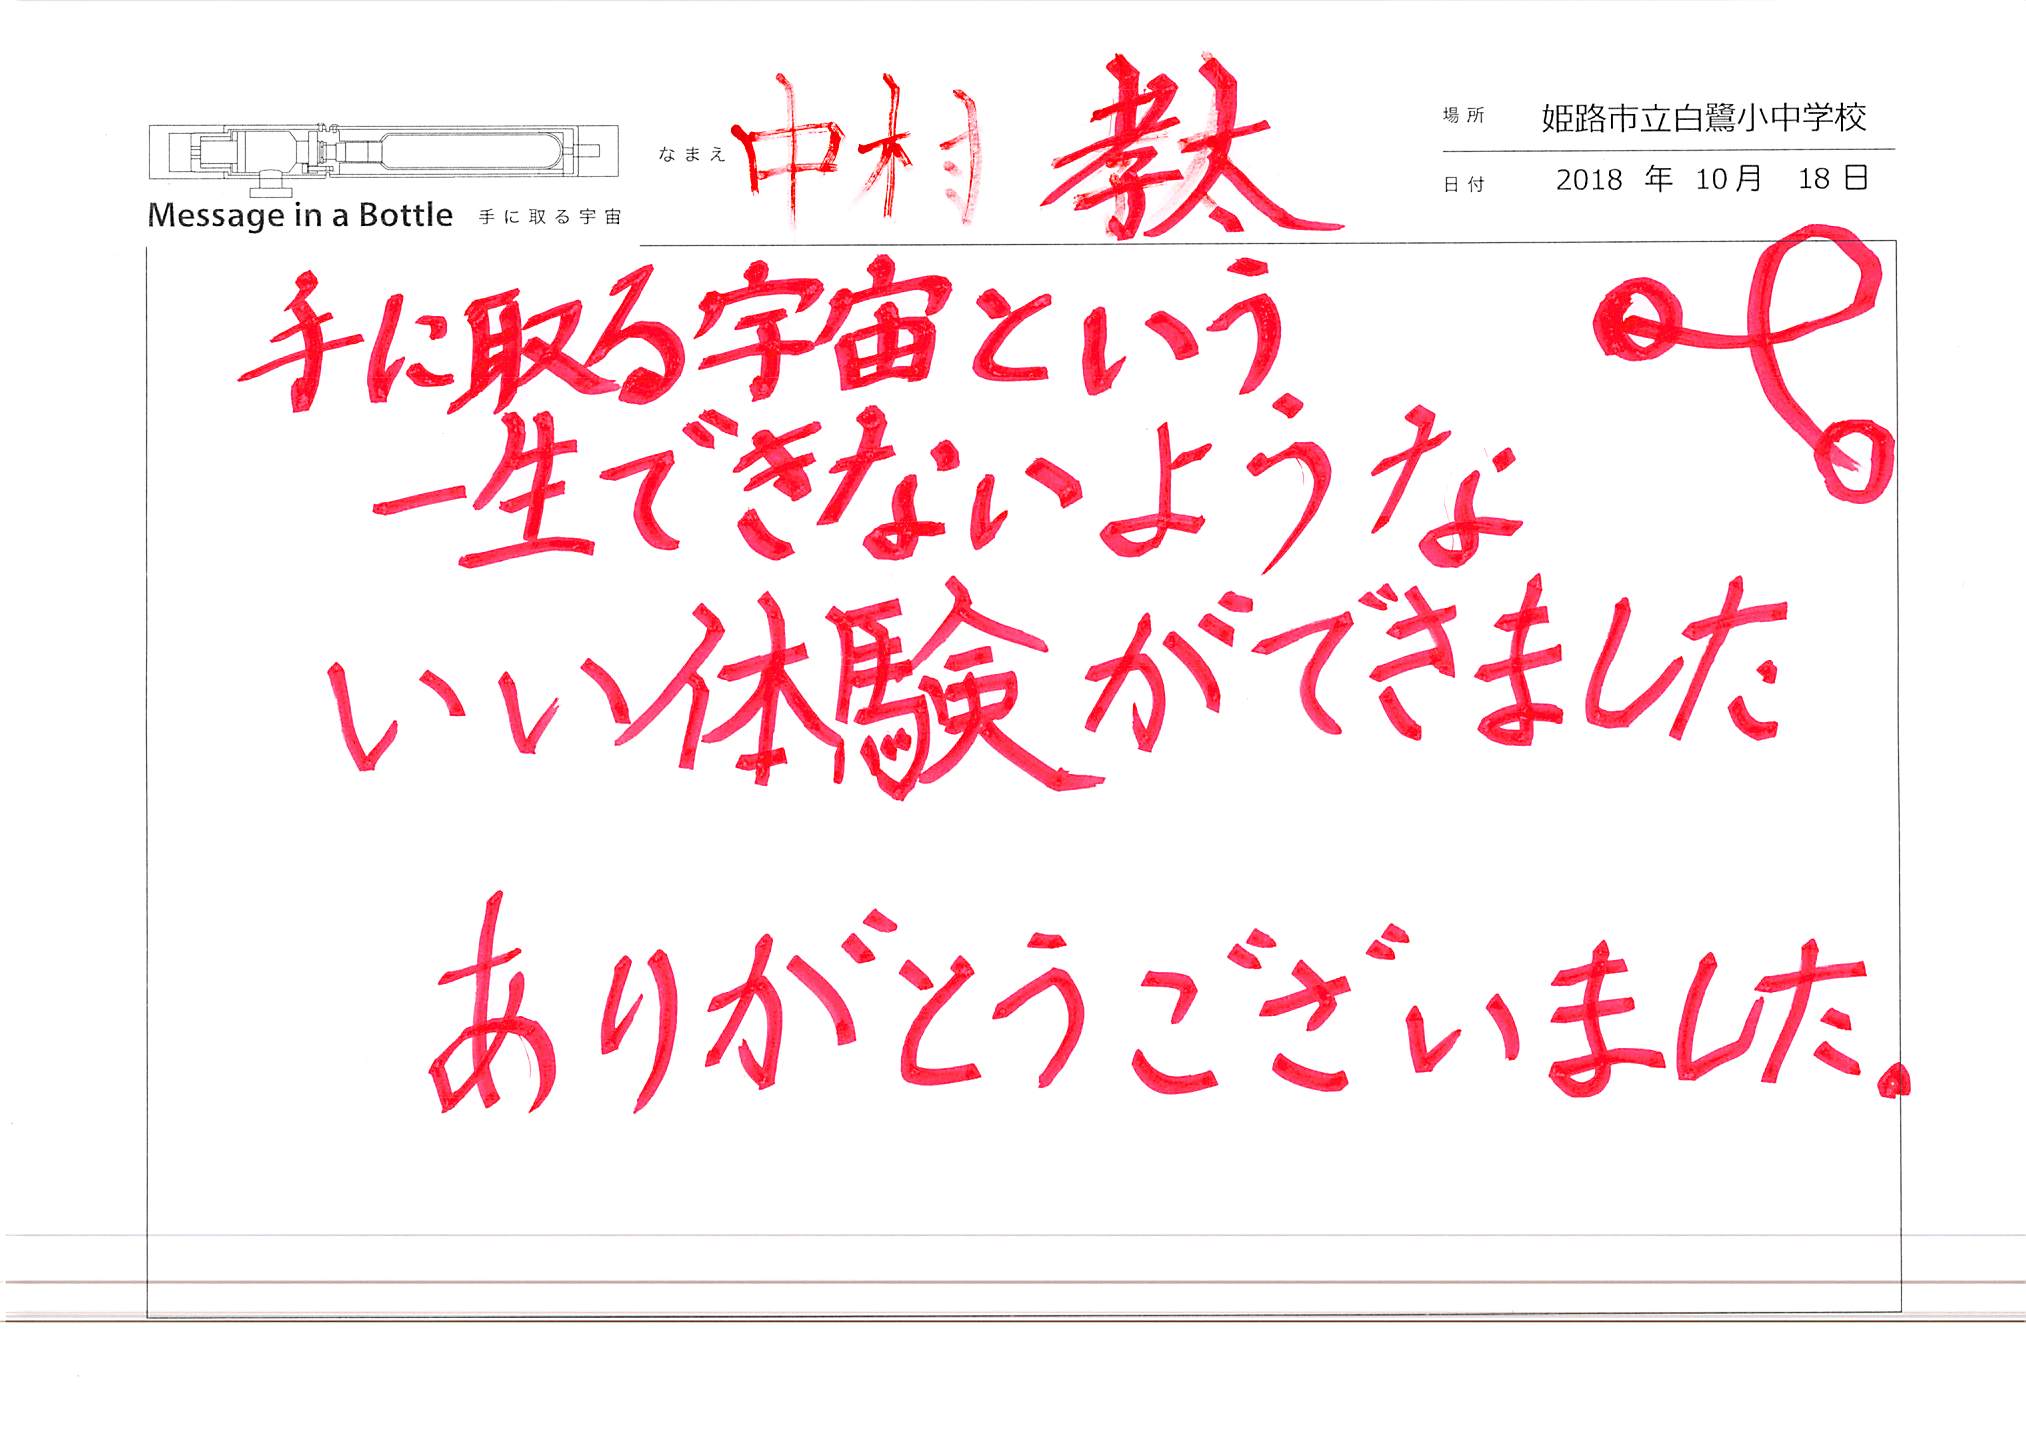 なまえ 中村 孝太
場所 姫路市立白鷺小中学校
日付 2018 年 10 月 18 日
Message in a Bottle 手に取る宇宙
手に取る宇宙という
一生できないような
いい体験ができました
ありがとうございました。